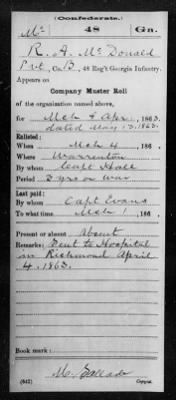 (Confederate.)
Mc 48 Ga.
R. A. McDonald
Pvt, Co. B, 48 Reg't Georgia Infantry.
Appears on
Company Muster Roll
of the organization named above,
for Mch & Apr, 1863.
dated May 13, 1863.
Enlisted:
When Mch 4, 186 .
Where Warrenton
By whom Capt Hall
Period 3 yrs or war
Last paid:
By whom Capt Evans
To what time Mch 1, 186 .
Present or absent Absent
Remarks: Sent to Hospital
in Richmond April
4. 1863.
Book mark:
(642) Copyist.